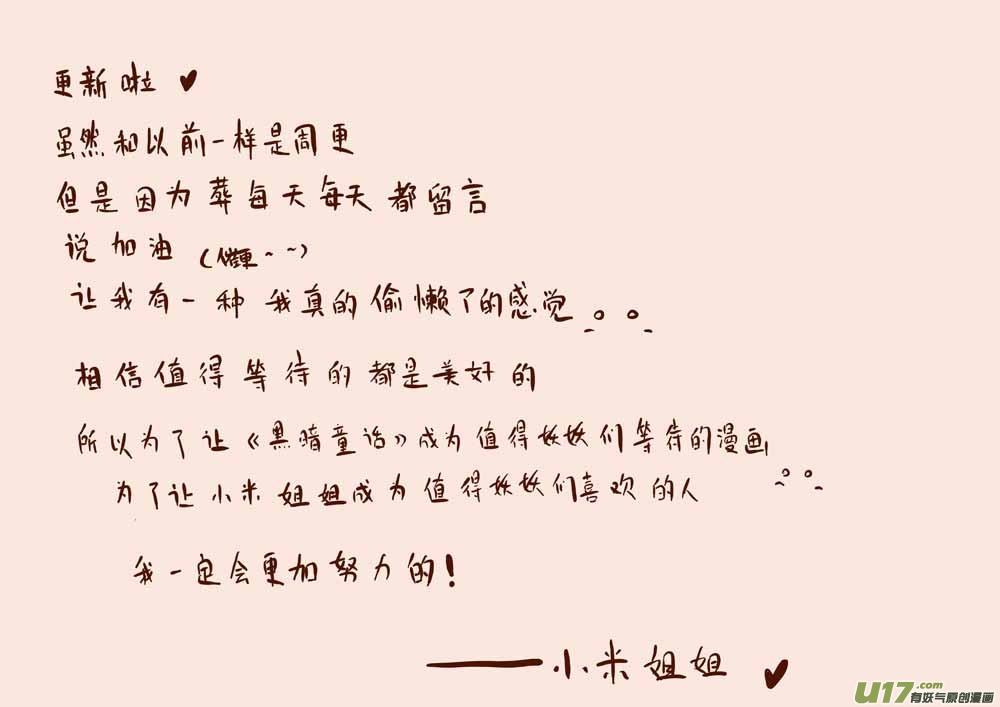 更新啦♥
虽然和以前一样是周更
但是因为葬每天每天都留言
说加油（催更~~）
让我有一种我真的偷懒了的感觉
相信值得等待的都是美好的
所以为了让《黑暗童话》成为值得妖妖们等待的漫画
为了让小米姐姐成为值得妖妖们喜欢的人
我一定会更加努力的！
——小米姐姐♥
U17.com
有妖气原创漫画